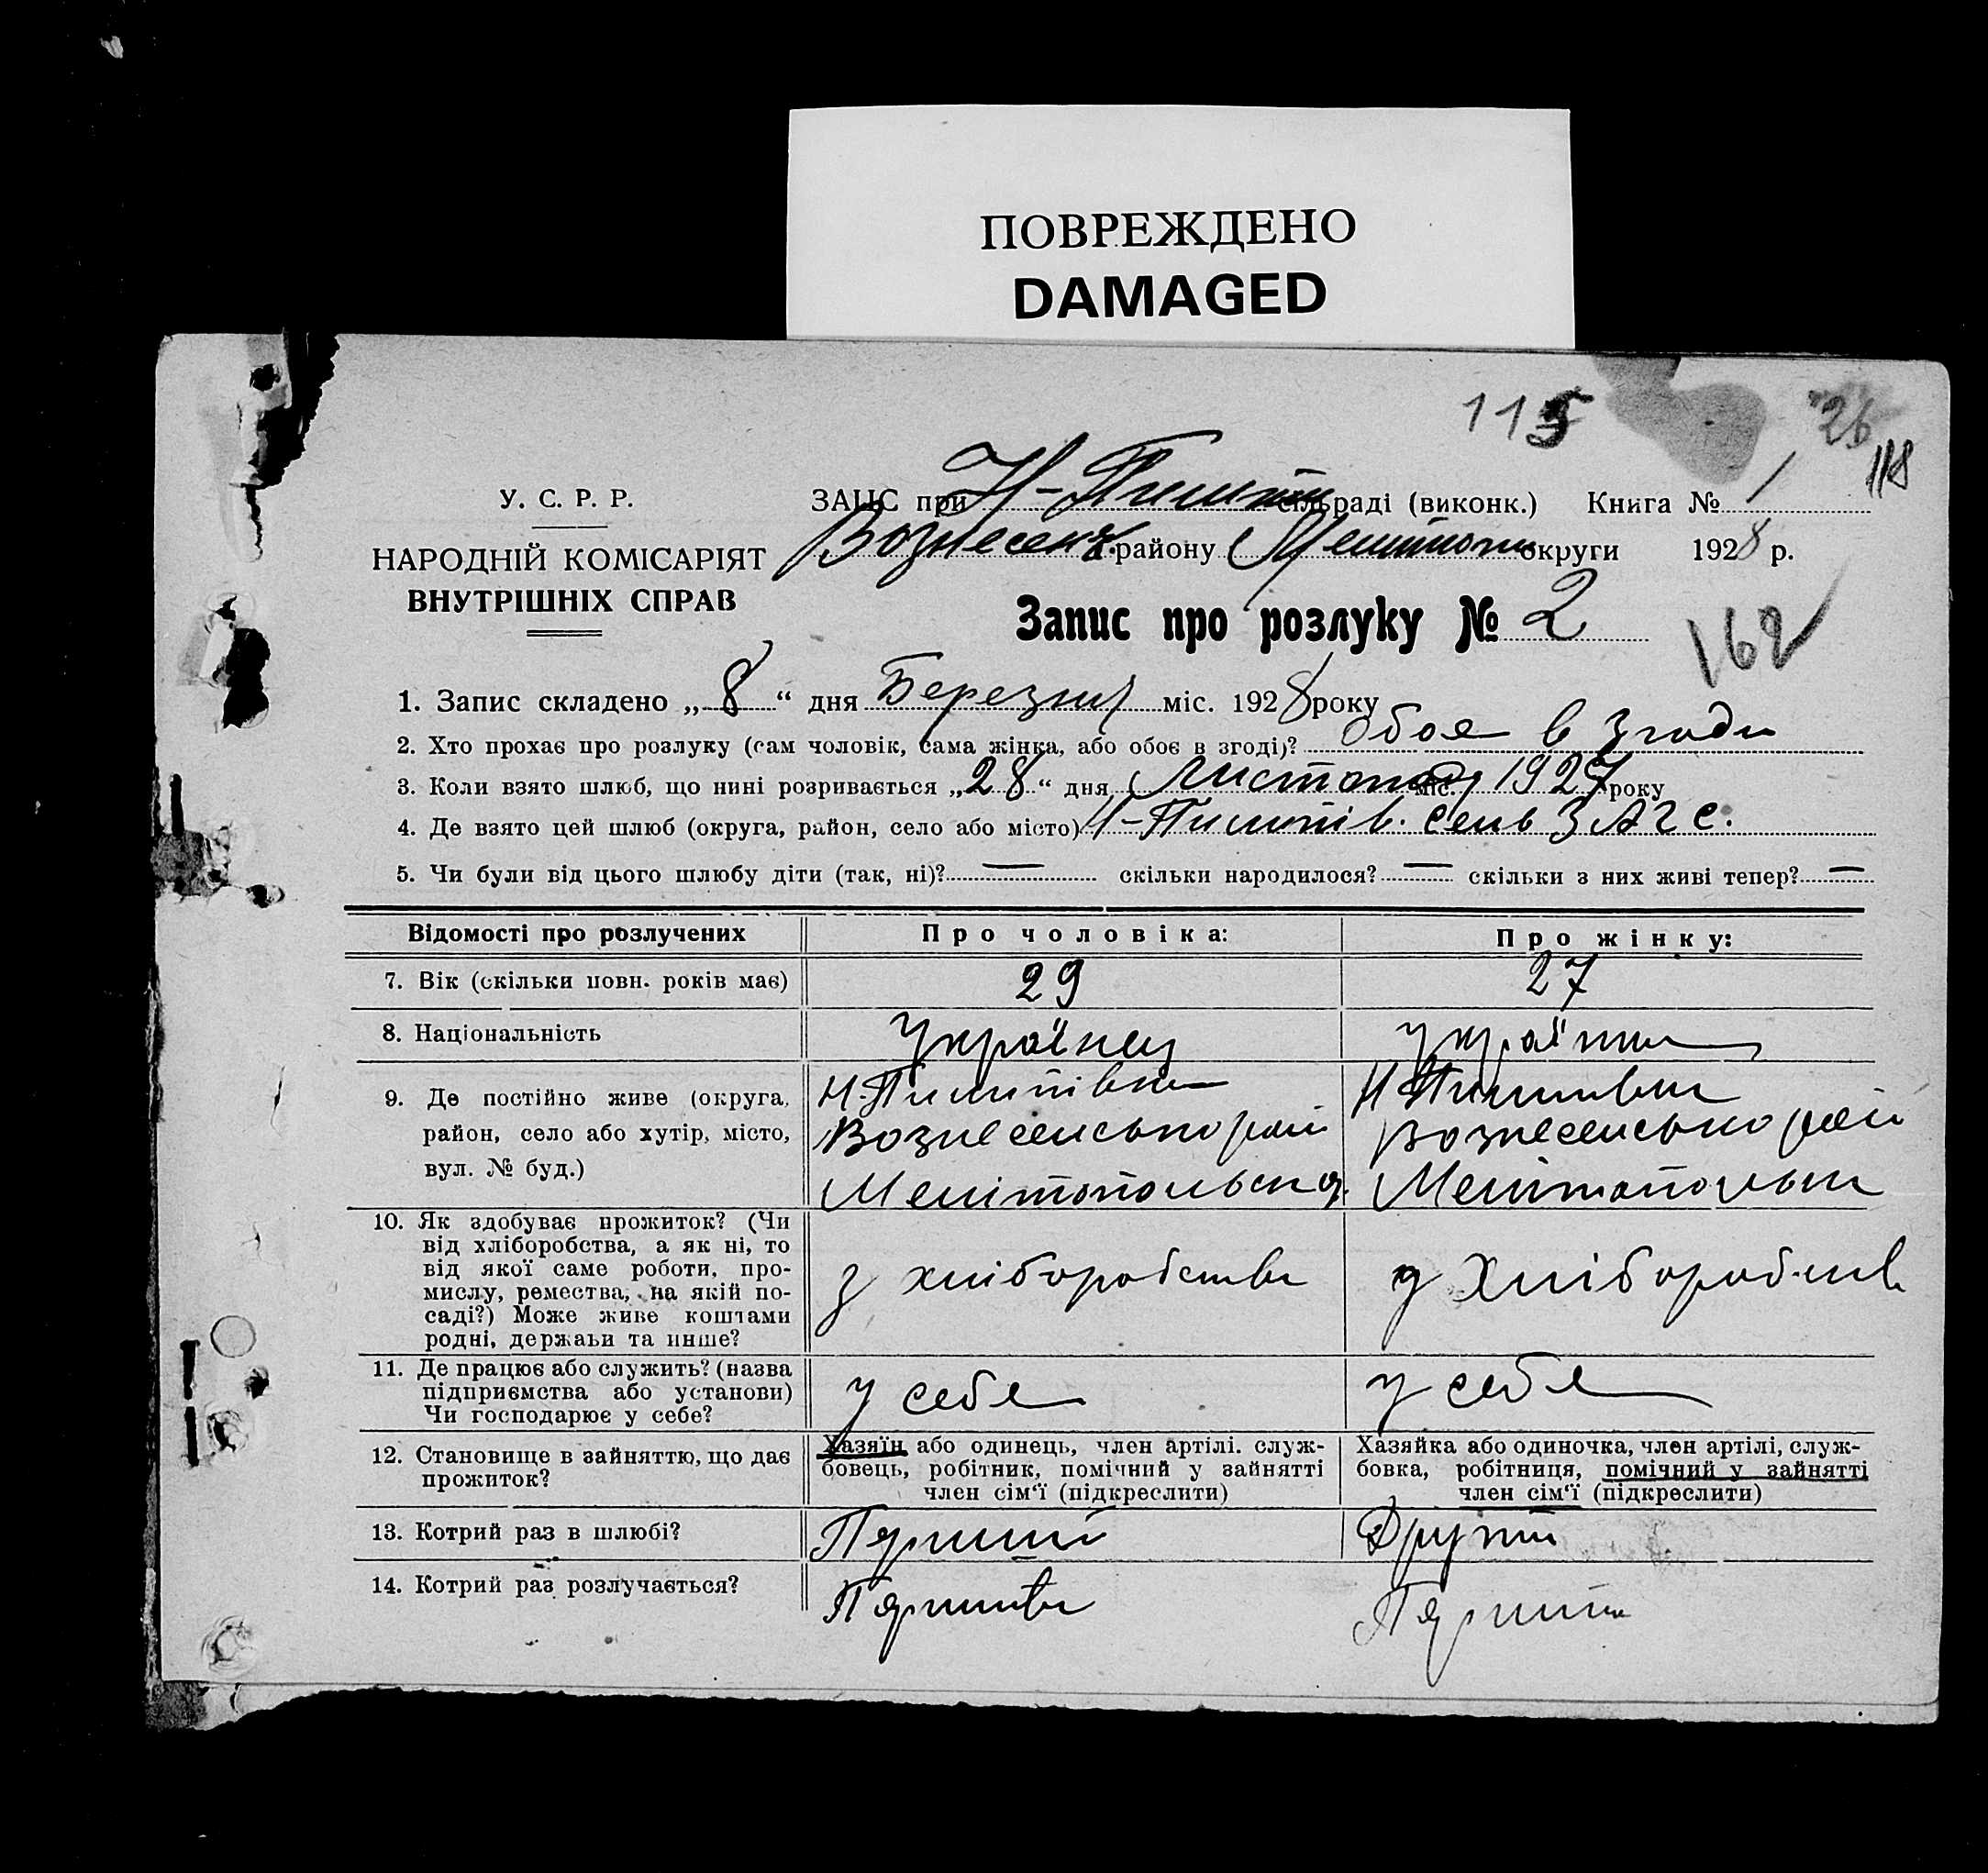 ПОВРЕЖДЕНО
DAMAGED
115 26
118
У. С. Р. Р.
ЗАЦС при Н-Пилип сільраді (виконк.) Книга № 1
НАРОДНІЙ КОМІСАРІЯТ
ВНУТРІШНІХ СПРАВ
Вознесенк. району Мелітоп округи 1928 р.
Запис про розлуку № 2
162
1. Запис складено „8“ дня Березня міс. 1928 року
2. Хто прохає про розлуку (сам чоловік, сама жінка, або обоє в згоді)? Обоє в згоди
3. Коли взято шлюб, що нині розривається „28“ дня Листопад міс. 1927 року
4. Де взято цей шлюб (округа, район, село або місто) Н-Пилипів. сель ЗАГС.
5. Чи були від цього шлюбу діти (так, ні)? — скільки народилося? — скільки з них живі тепер? —
Відомості про розлучених Про чоловіка: Про жінку:
7. Вік (скільки повн. років має) 29 27
8. Національність Українец українка
9. Де постійно живе (округа, район, село або хутір, місто, вул. № буд.)
Н-Пилипівка
Вознесенсько рай
Мелітопольськ
Н-Пилипівка
Вознесенсько рай
Мелітопольск
10. Як здобуває прожиток? (Чи
від хліборобства, а як ні, то
від якої саме роботи, про-
мислу, ремества, на якій по-
саді?) Може живе коштами
родні, держави та инше?
з хліборобства
з Хліборобств
11. Де працює або служить? (назва
підприємства або установи)
Чи господарює у себе?
у себе
у себе
12. Становище в зайняттю, що дає
прожиток?
Хазяїн або одинець, член артілі. служ-
бовець, робітник, помічний у зайнятті
член сім'ї (підкреслити)
Хазяйка або одиночка, член артілі, служ-
бовка, робітниця, помічний у зайнятті
член сім'ї (підкреслити)
13. Котрий раз в шлюбі? Перший Другий
14. Котрий раз розлучається?